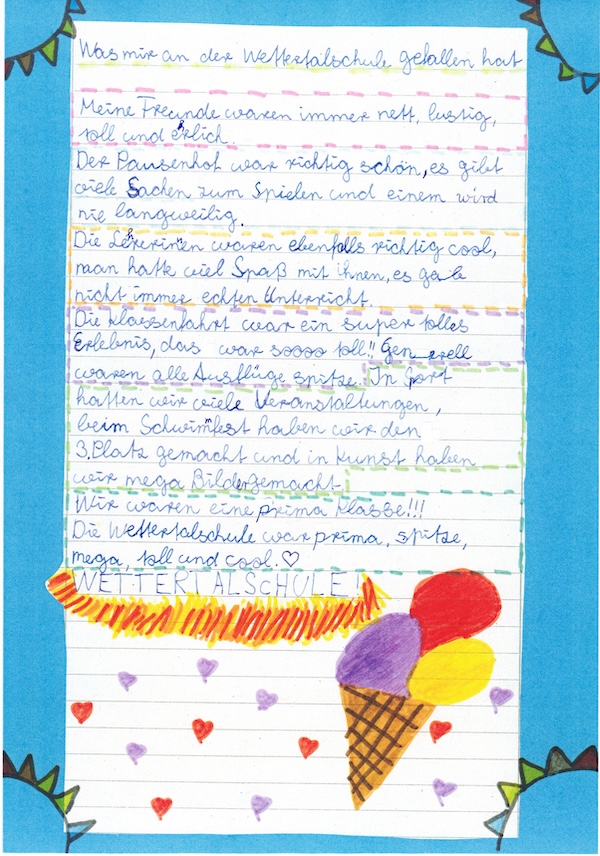 Was mir an der Wettertalschule gefallen hat
Meine Freunde waren immer nett, lustig,
toll und ehrlich.
Der Pausenhof war richtig schön, es gibt
viele Sachen zum Spielen und einem wird
nie langweilig.
Die Lehrerinnen waren ebenfalls richtig cool,
man hatte viel Spaß mit ihnen, es gab
nicht immer echten Unterricht.
Die Klassenfahrt war ein super tolles
Erlebnis, das war soooo toll!! Generell
waren alle Ausflüge spitze. In Sport
hatten wir viele Veranstaltungen,
beim Schwimmfest haben wir den
3. Platz gemacht und in Kunst haben
wir mega Bilder gemacht.
Wir waren eine prima Klasse!!!
Die Wettertalschule war prima, spitze,
mega, toll und cool. ♡
WETTERTALSCHULE!